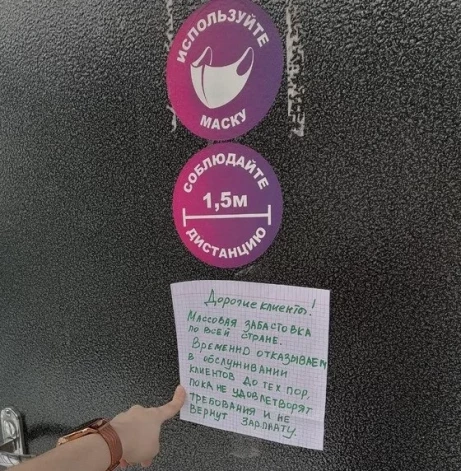 ИСПОЛЬЗУЙТЕ
МАСКУ
СОБЛЮДАЙТЕ
1,5м
ДИСТАНЦИЮ
Дорогие клиенты!
МАССОВАЯ ЗАБАСТОВКА
ПО ВСЕЙ СТРАНЕ.
ВРЕМЕННО ОТКАЗЫВАЕМ
В ОБСЛУЖИВАНИИ
КЛИЕНТОВ ДО ТЕХ ПОР,
ПОКА НЕ УДОВЛЕТВОРЯТ
ТРЕБОВАНИЯ И НЕ
ВЕРНУТ ЗАРПЛАТУ.